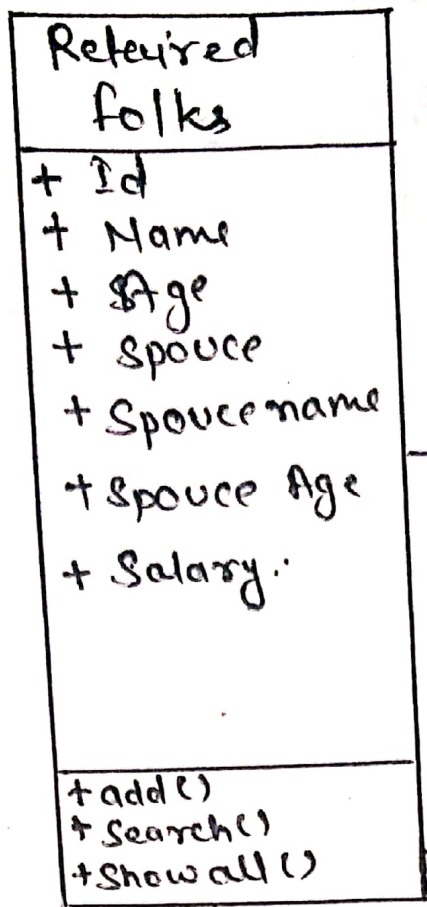 Reteuired
folks
+ Id
+ Name
+ Age
+ Spouce
+ Spouce name
+ Spouce Age
+ Salary.
+ add()
+ Search()
+ Show all ()